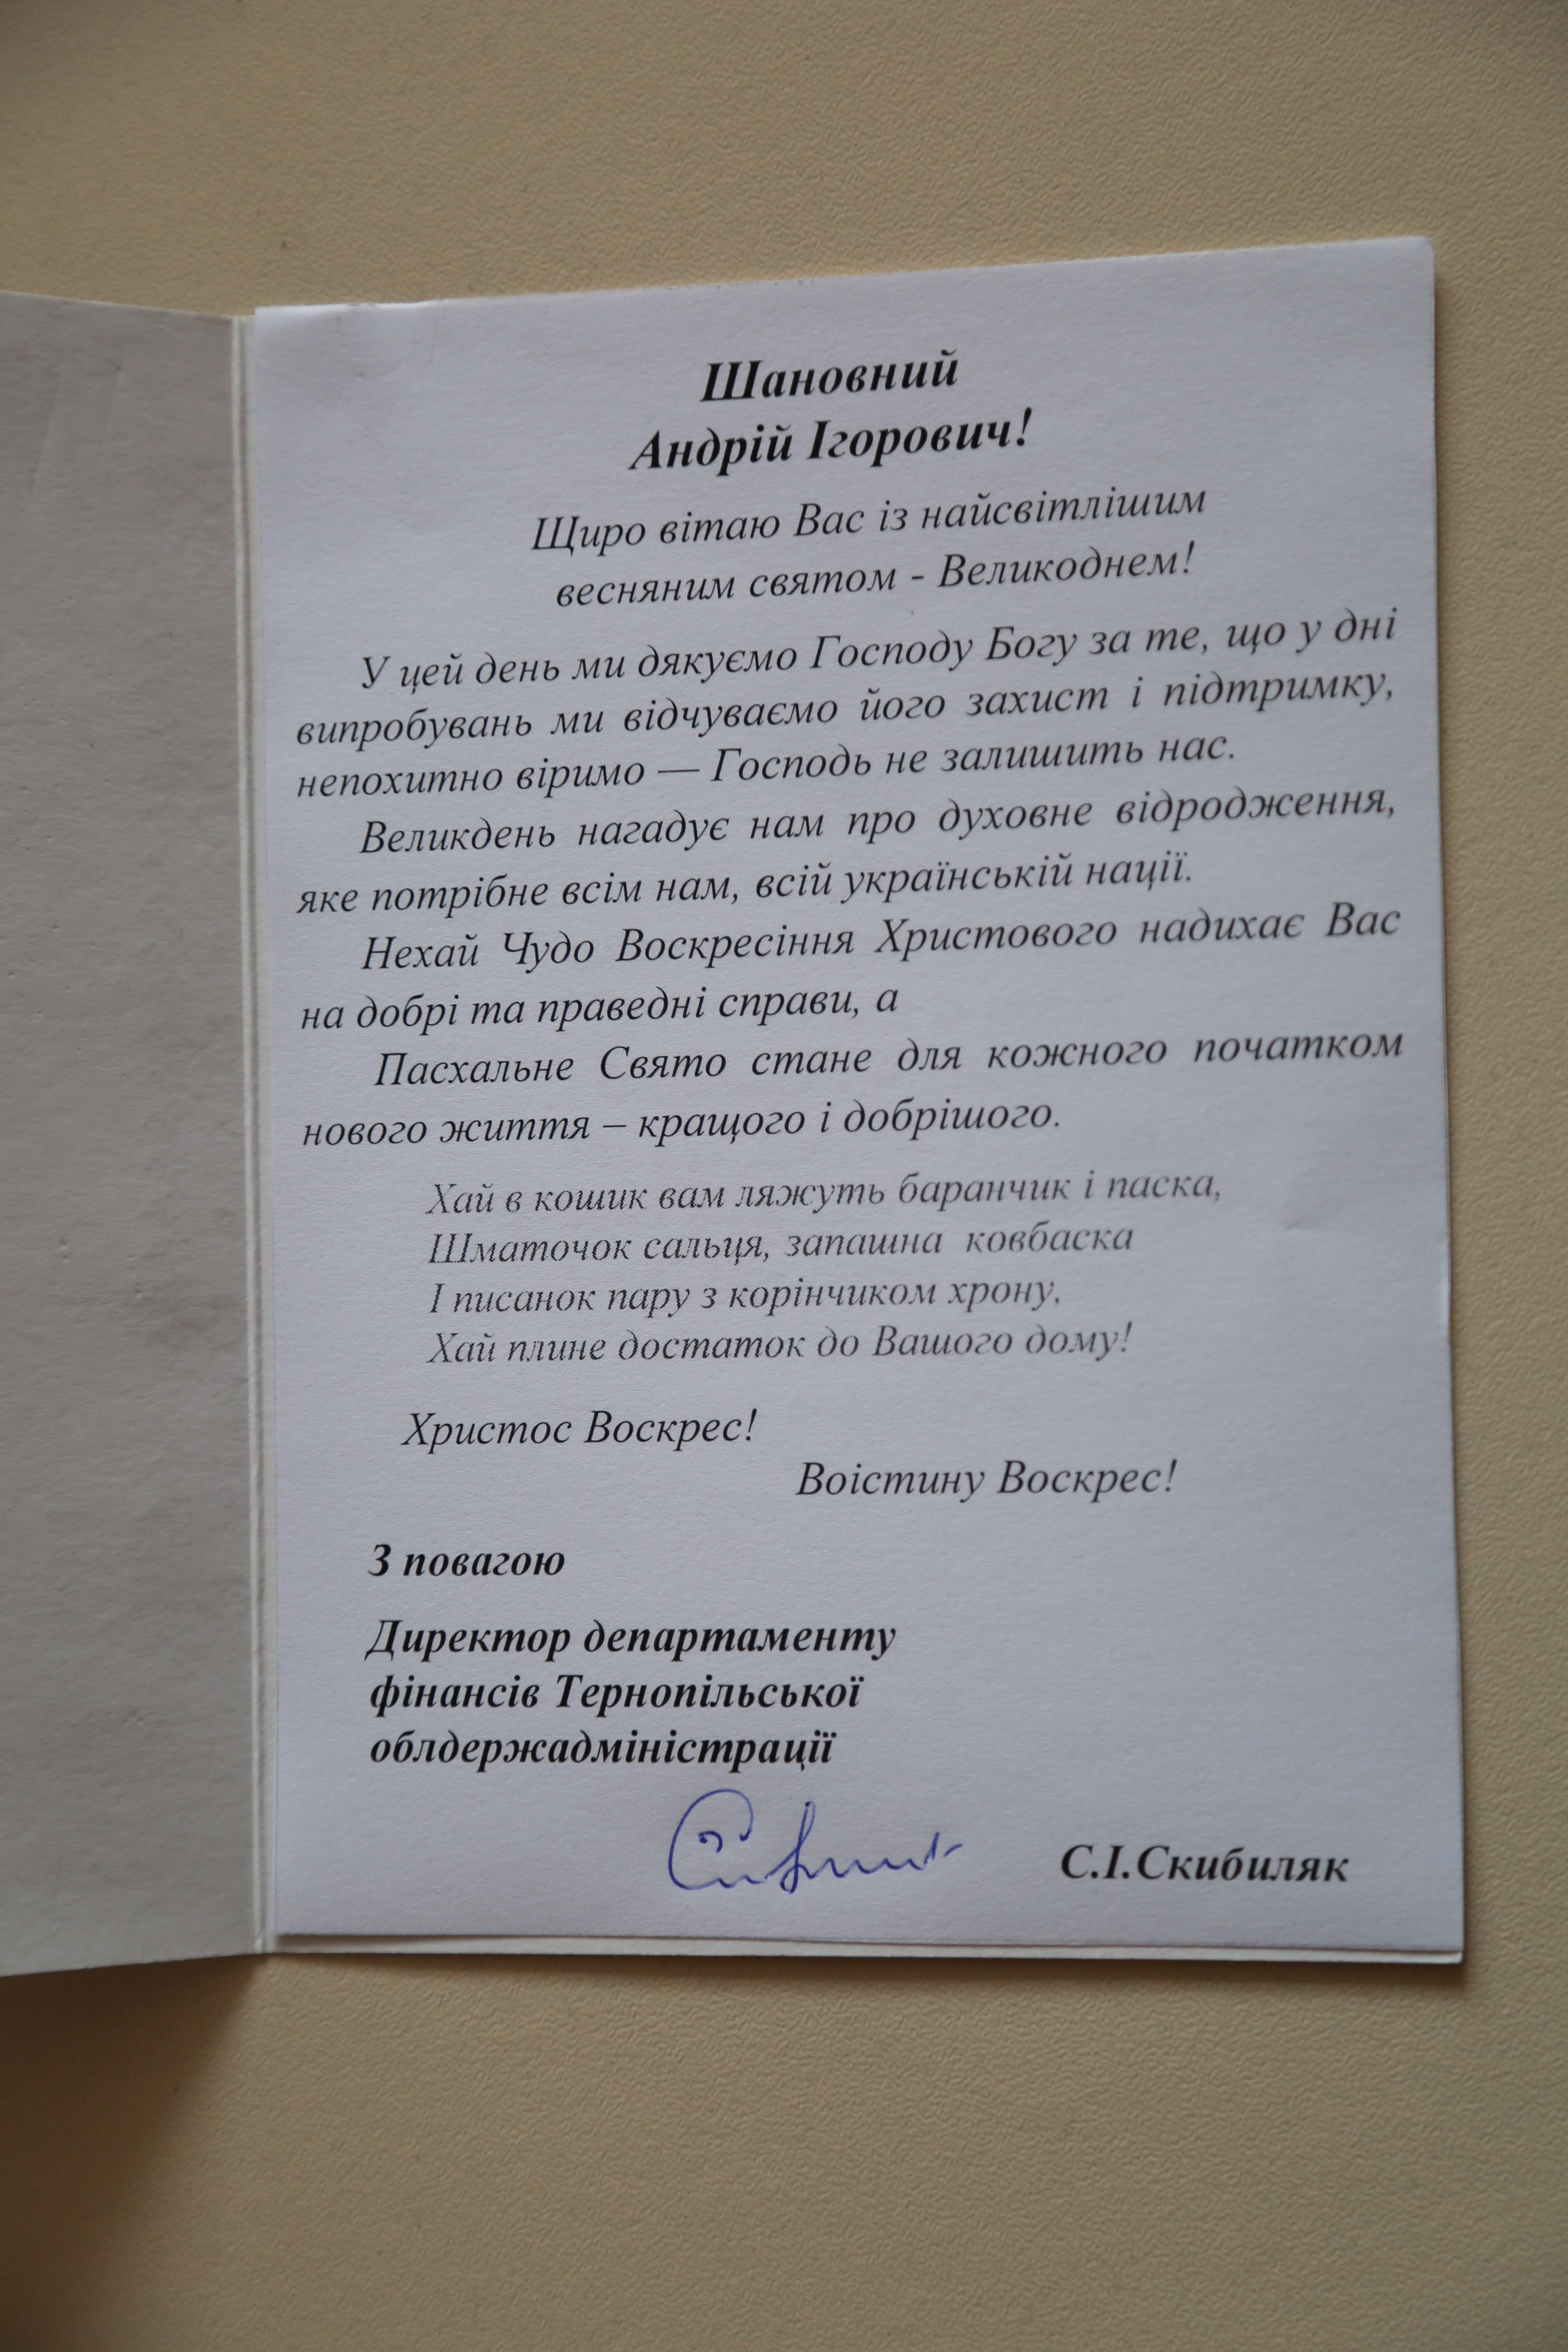 Шановний
Андрій Ігорович!
Щиро вітаю Вас із найсвітлішим
весняним святом - Великоднем!
У цей день ми дякуємо Господу Богу за те, що у дні
випробувань ми відчуваємо його захист і підтримку,
непохитно віримо — Господь не залишить нас.
Великдень нагадує нам про духовне відродження,
яке потрібне всім нам, всій українській нації.
Нехай Чудо Воскресіння Христового надихає Вас
на добрі та праведні справи, а
Пасхальне Свято стане для кожного початком
нового життя – кращого і добрішого.
Хай в кошик вам ляжуть баранчик і паска,
Шматочок сальця, запашна ковбаска
І писанок пару з корінчиком хрону,
Хай плине достаток до Вашого дому!
Христос Воскрес!
Воістину Воскрес!
З повагою
Директор департаменту
фінансів Тернопільської
облдержадміністрації
С.І.Скибиляк